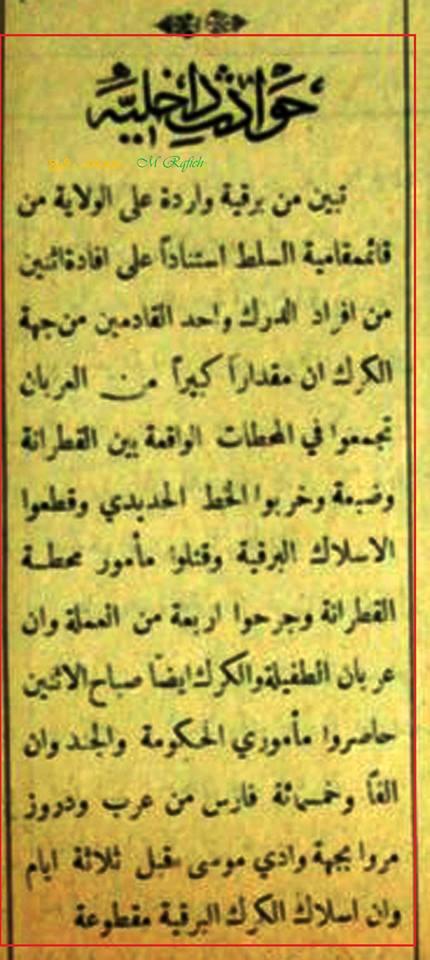 حوادث داخلية
M Rafieh
تبين من برقية واردة على الولاية من
قائمقامية السلط استناداً على افادة اثنين
من افراد الدرك واحد القادمين من جهة
الكرك ان مقداراً كبيراً من العربان
تجمعوا في المحطات الواقعة بين القطرانة
وضبعة وخربوا الخط الحديدي وقطعوا
الاسلاك البرقية وقتلوا مأمور محطة
القطرانة وجرحوا اربعة من العملة وان
عربان الطفيلة والكرك ايضاً صباح الاثنين
حاصروا مأموري الحكومة والجند وان
الفاً وخمسمائة فارس من عرب ودروز
مروا بجهة وادي موسى قبل ثلاثة ايام
وان اسلاك الكرك البرقية مقطوعة